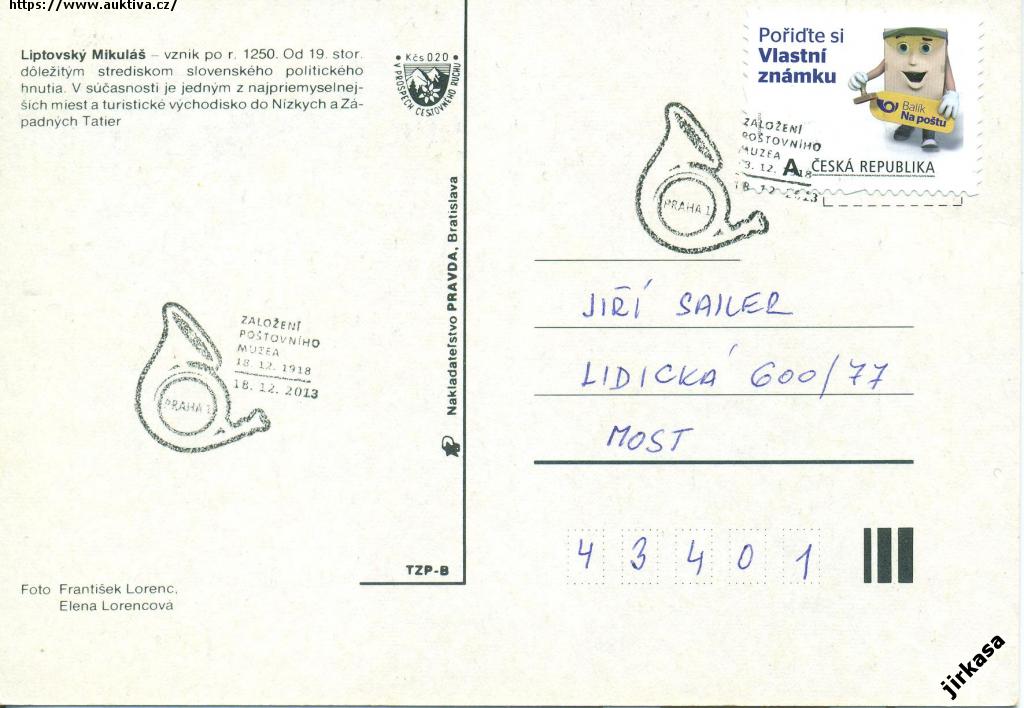 https://www.auktiva.cz/
Liptovský Mikuláš – vznik po r. 1250. Od 19. stor.
dôležitým strediskom slovenského politického
hnutia. V súčasnosti je jedným z najpriemyselnej-
ších miest a turistické východisko do Nízkych a Zá-
padných Tatier
Kčs 0.20
V PROSPECH CESTOVNÉHO RUCHU
Nakladateľstvo PRAVDA, Bratislava
TZP-B
Foto František Lorenc,
Elena Lorencová
PRAHA 1
ZALOŽENÍ
POŠTOVNÍHO
MUZEA
18. 12. 1918
18. 12. 2013
Pořiďte si
Vlastní
známku
Balík
Na poštu
A ČESKÁ REPUBLIKA
PRAHA 1
ZALOŽENÍ
POŠTOVNÍHO
MUZEA
18. 12. 2013
JIŘÍ SAILER
LIDICKÁ 600/77
MOST
43401
jirkasa